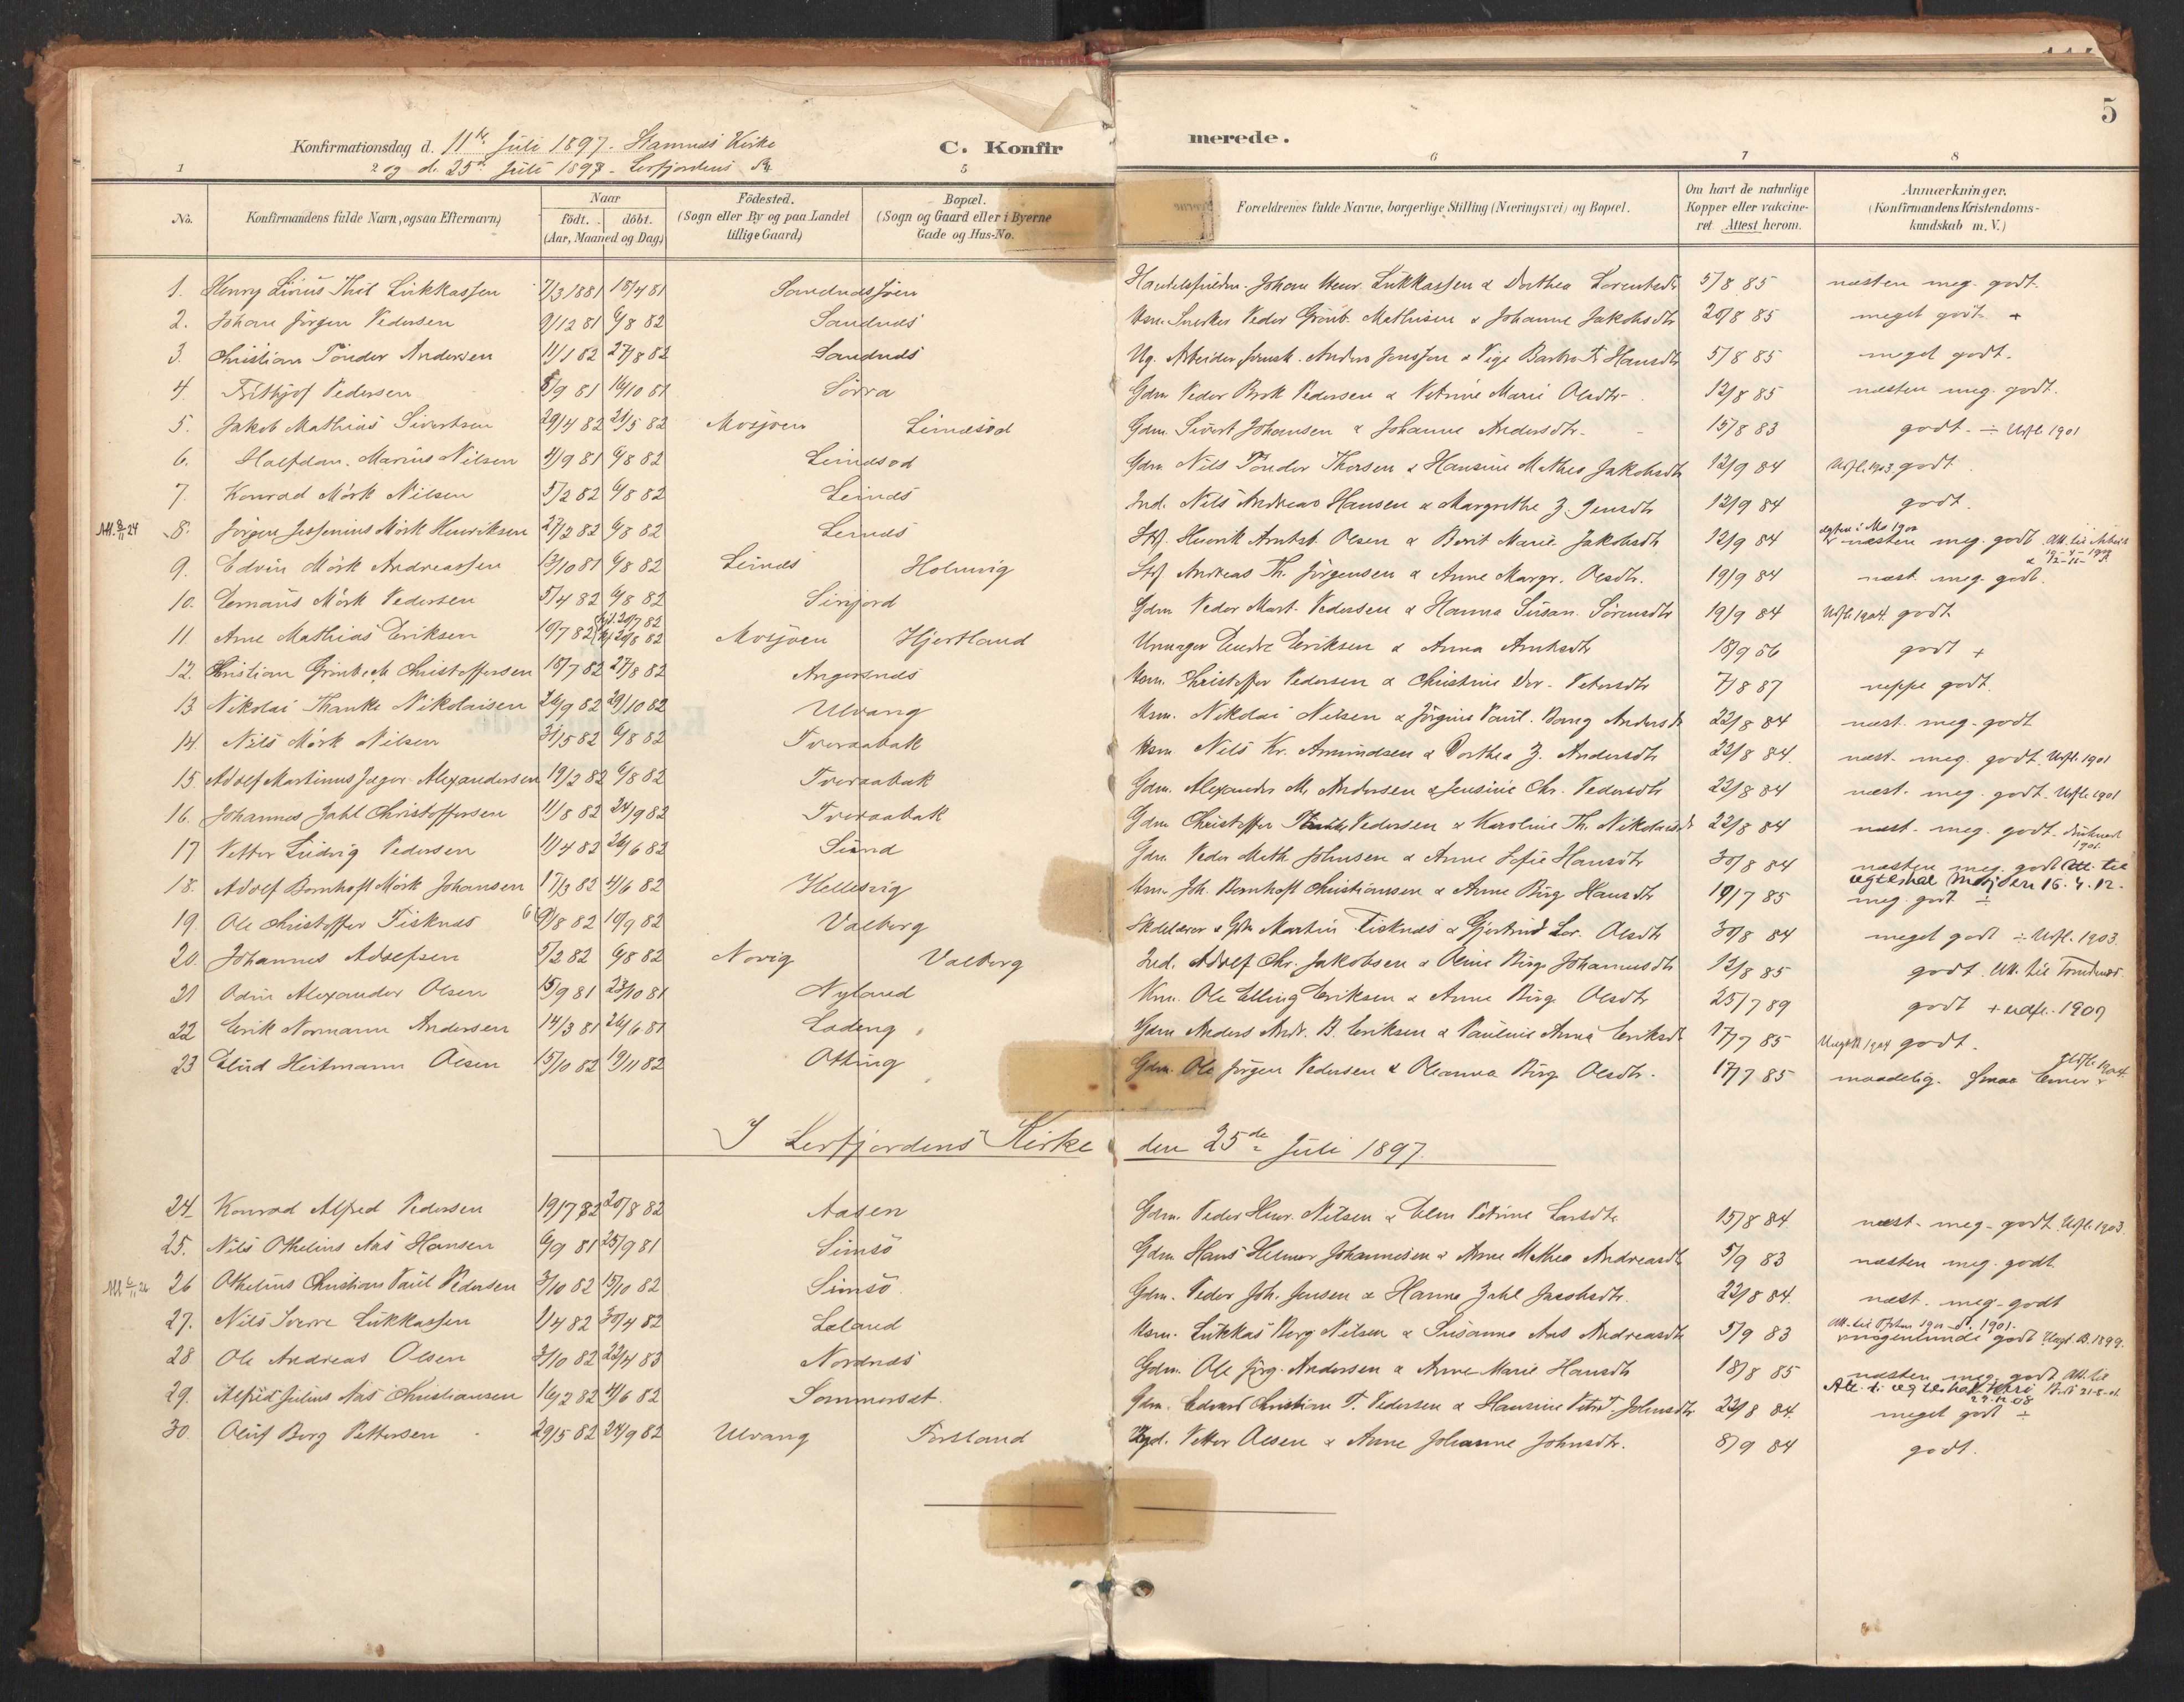 5
Konfirmationsdag d. 11te Juli 1897. Stamnes Kirke
og d. 25de Juli 1897 - Lerfjordens K.
C. Konfirmerede.
1 2 5 6 7 8
No. Konfirmandens fulde Navn, ogsaa Efternavn) Naar födt. döbt. (Aar, Maaned og Dag) Födested. (Sogn eller By og paa Landet tillige Gaard) Bopæl. (Sogn og Gaard eller i Byerne Gade og Hus-No. Forældrenes fulde Navne, borgerlige Stilling (Næringsvei) og Bopæl. Om havt de naturlige Kopper eller vakcineret Attest herom. Anmærkninger. (Konfirmandens Kristendomskundskab m. V.)
1. Henry Lukkassen 7/3 1881 18/4 81 Sandnessjøen Johan Henr. Lukkassen & Dorthea Lorentsdtr 5/8 85 næsten meg. godt.
2. Johan Jörgen Pedersen 9/12 81 6/8 82 Sandnes Peder Grönb. Mathisen & Johanne Jakobsdtr 20/8 85 meget godt +
3. Christian Tönder Andersen 11/1 82 27/8 82 Sandnes Ug. Arbeider Anders Jonssen & Pige Hansdtr 5/8 85 meget godt.
4. Frithjof Pedersen 8/9 81 16/10 81 Sörra Gdm. Peder Pedersen & Petrine Marie Olsdtr 12/8 85 næsten meg. godt.
5. Jakob Mathias Sivertsen 29/4 82 21/5 82 Mosjøen Leinesod Gdm. Sivert Johansen & Johanne Andersdtr. 15/8 83 godt. ÷ Udfl. 1901
6. Halfdan Marius Nilsen 4/9 81 6/8 82 Leinesod Gdm. Nils Tönder Thorsen & Hansine Mathea Jakobsdtr 12/9 84 Udfl. 1903. godt.
7. Konrad Mörk Nilsen 5/2 82 6/8 82 Leines Ind. Nils Andreas Hansen & Margrethe Z. Jensdtr 12/9 84 godt.
8. Jörgen Jessenius Mörk Henriksen 27/2 82 6/8 82 Leines Henrik Arntst. Olsen & Berit Marie Jakobsdtr 12/9 84 næsten meg. godt.
9. Edvin Mörk Andreassen 13/10 81 6/8 82 Leines Holmvig Andreas Th. Jörgensen & Anne Margr. Olsdtr. 19/9 84 næst. meg. godt.
10. Mörk Pedersen 5/4 82 6/8 82 Sinjord Gdm. Peder Mart. Pedersen & Hanna Susan. Sörensdtr 19/9 84 Udfl. 1904. godt
11 Arne Mathias Eriksen 10/7 82 20/8 82 Mosjøen Hjertland Urmager Eriksen & Anna Arntsdtr 18/9 86 godt +
12. Christian Grönbech Christoffersen 18/7 82 27/8 82 Angersnes Christoffer Pedersen & Christine Petersdtr 7/8 87 neppe godt.
13 Nikolai Thanke Nikolaisen 26/9 82 29/10 82 Ulvang Nikolai Nilsen & Jörgine Paul. Bang Andersdtr 22/8 84 næst. meg. godt
14. Nils Mörk Nilsen 31/5 82 6/8 82 Tveraabak Nils Kr. Amundsen & Dorthea Z. Andersdtr 22/8 84. næst. meg. godt. Udfl. 1901
15. Adolf Martinus Jæger Alexandersen 19/2 82 6/8 82 Tveraabak Gdm. Alexander M. Andersen & Jensine Chr. Pedersdtr 22/8 84 næst. meg. godt. Udfl. 1901
16. Johannes Jahl Christoffersen 11/8 82 24/9 82 Tveraabak Gdm Christoffer Pedersen & Karoline Th. Nikolaisdtr 22/8 84 næst. meg. godt. 1901.
17 Petter Ludvig Pedersen 11/4 82 26/6 82 Sund Gdm. Peder Meth. Johnsen & Anne Sofie Hansdtr 30/8 84 næsten meg. godt Att. til ægteskab Mosjöen 16.4.12.
18. Adolf Bernhoft Mörk Johansen 17/3 82 4/6 82 Hellesvig Joh. Bernhoft Christiansen & Anne Birg. Hansdtr 19/7 85 meg. godt ÷
19. Ole Christoffer Fisknes 6/8 82 10/9 82 Valberg Skolelærer & Gdm Martin Fisknes & Gjertrud Lor. Olsdtr 30/8 84 meget godt ÷ Udfl. 1903.
20. Johannes Adolfsen 5/2 82 6/8 82 Novig Valberg Ind. Adolf Chr. Jakobsen & Oline Birg. Johannesdtr 12/8 85 godt. Att. til
21 Odin Alexander Olsen 15/9 81 23/10 81 Nyland Ole Elling Eriksen & Anne Birg. Olsdtr 25/7 89 godt + udfl. 1907
22 Erik Normann Andersen 14/3 81 26/6 81 Lodeng Gdm Anders Andr. B. Eriksen & Pauline Anna Eriksdtr 17/7 85 godt.
23 Elud Heitmann Olsen 15/10 82 19/11 82 Otting Gdm. Ole Jörgen Pedersen & Oleanna Birg. Olsdtr. 17/7 85 maadelig. Udfl. 1904.
I Lerfjordens Kirke den 25de Juli 1897.
24. Konrad Alfred Pedersen 19/7 82 20/8 82 Aasen Gdm. Peder Henr. Nilsen & Petrine Larsdtr 15/8 84. næst. meg. godt. Udfl. 1903.
25. Nils Othelius Aas Hansen 6/9 81 25/9 81 Simsö Gdm Hans Helmer Johannesen & Anne Mathea Andreasdtr 5/9 83 næsten meg. godt
26 Othelius Christian Paul Pedersen 3/10 82 15/10 82 Simsö Gdm. Peder Joh. Jensen & Hanna Zahl Jacobsdtr. 22/8 84. næst. meg. godt
27. Nils Sverre Lukkassen 1/4 82 30/4 82 Leland Lukkas Borg Nilsen & Susanna Aas Andreasdtr 5/9 83 nogenlunde godt
28 Ole Andreas Olsen 3/10 82 22/4 83 Nordnes Gdm. Ole Jörg. Andersen & Anne Marie Hansdtr 18/8 85 næsten meg. godt Att. til
29. Alfred Julius Aas Christiansen 16/2 82 4/6 82 Sommerset Gdm. Edvard Christian T. Pedersen & Hansine Petr. T. Johnsdtr 22/8 84. meget godt ÷
30. Oluf Borg Pettersen 29/5 82 24/9 82 Ulvang Forsland Petter Olsen & Anne Johanne Johnsdtr. 8/9 84 godt.